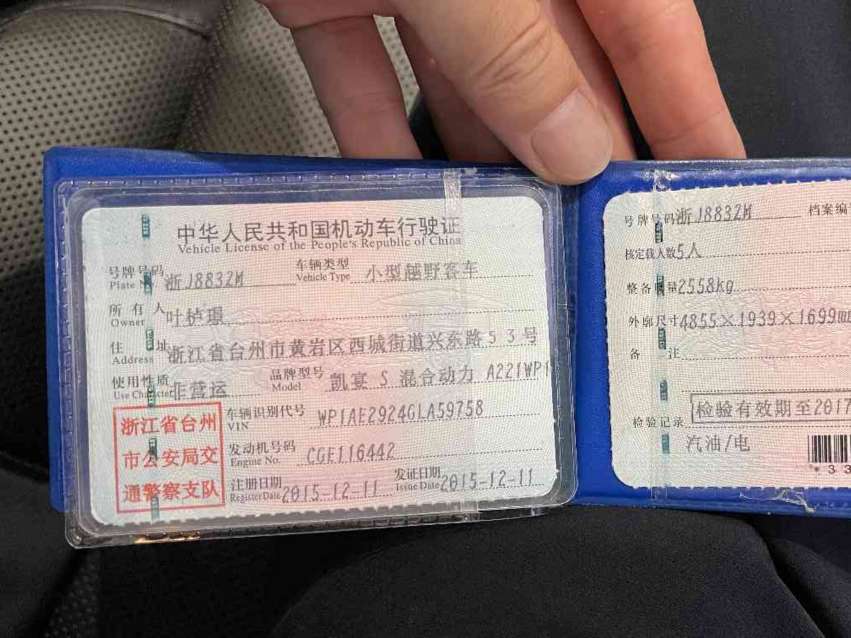 中华人民共和国机动车行驶证
Vehicle License of the People's Republic of China
号牌号码 浙J8832M 车辆类型 小型越野客车
Plate No. Vehicle Type
所有人 叶栌璟
Owner
住址 浙江省台州市黄岩区西城街道兴东路53号
Address
使用性质 非营运 品牌型号 凯宴 S 混合动力 A221WP1
Use Character Model
浙江省台州
市公安局交
通警察支队
车辆识别代号 WP1AE2924GLA59758
VIN
发动机号码 CGE116442
Engine No.
注册日期 2015-12-11 发证日期 2015-12-11
Register Date Issue Date
号牌号码 浙J8832M 档案编
核定载人数 5人
整备质量 2558kg
外廓尺寸 4855×1939×1699mm
备注
检验有效期至2017
检验记录
汽油/电
*33